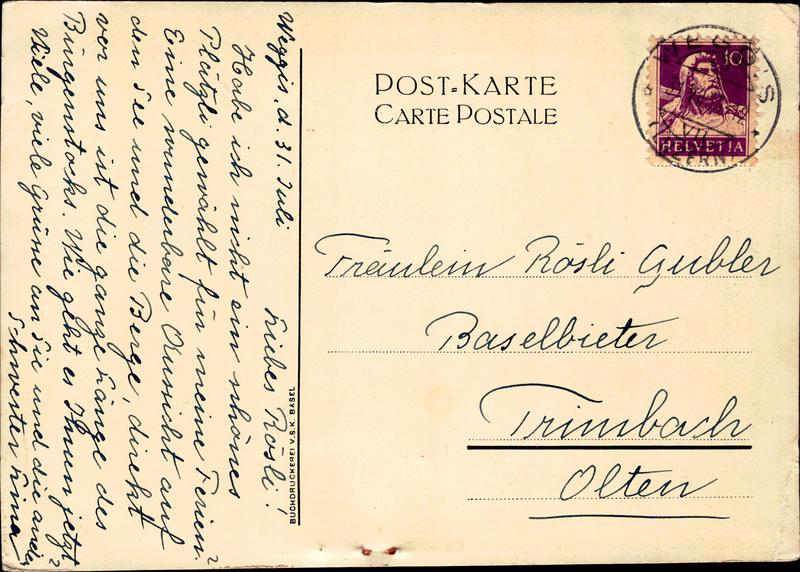 Weggis, d. 31. Juli
Liebes Rösli!
Habe ich nicht ein schönes
Plätzli gewählt für meine Ferien?
Eine wunderbare Aussicht auf
den See und die Berge, direkt
vor uns ist die ganze Länge des
Bürgenstocks. Wie geht es Ihnen jetzt?
Viele, viele Grüsse an Sie und die andern
Schwester Irma
BUCHDRUCKEREI V.S.K. BASEL
POST-KARTE
CARTE POSTALE
10
HELVETIA
WEGGIS
VII
Fräulein Rösli Gubler
Baselbieter
Trimbach
Olten